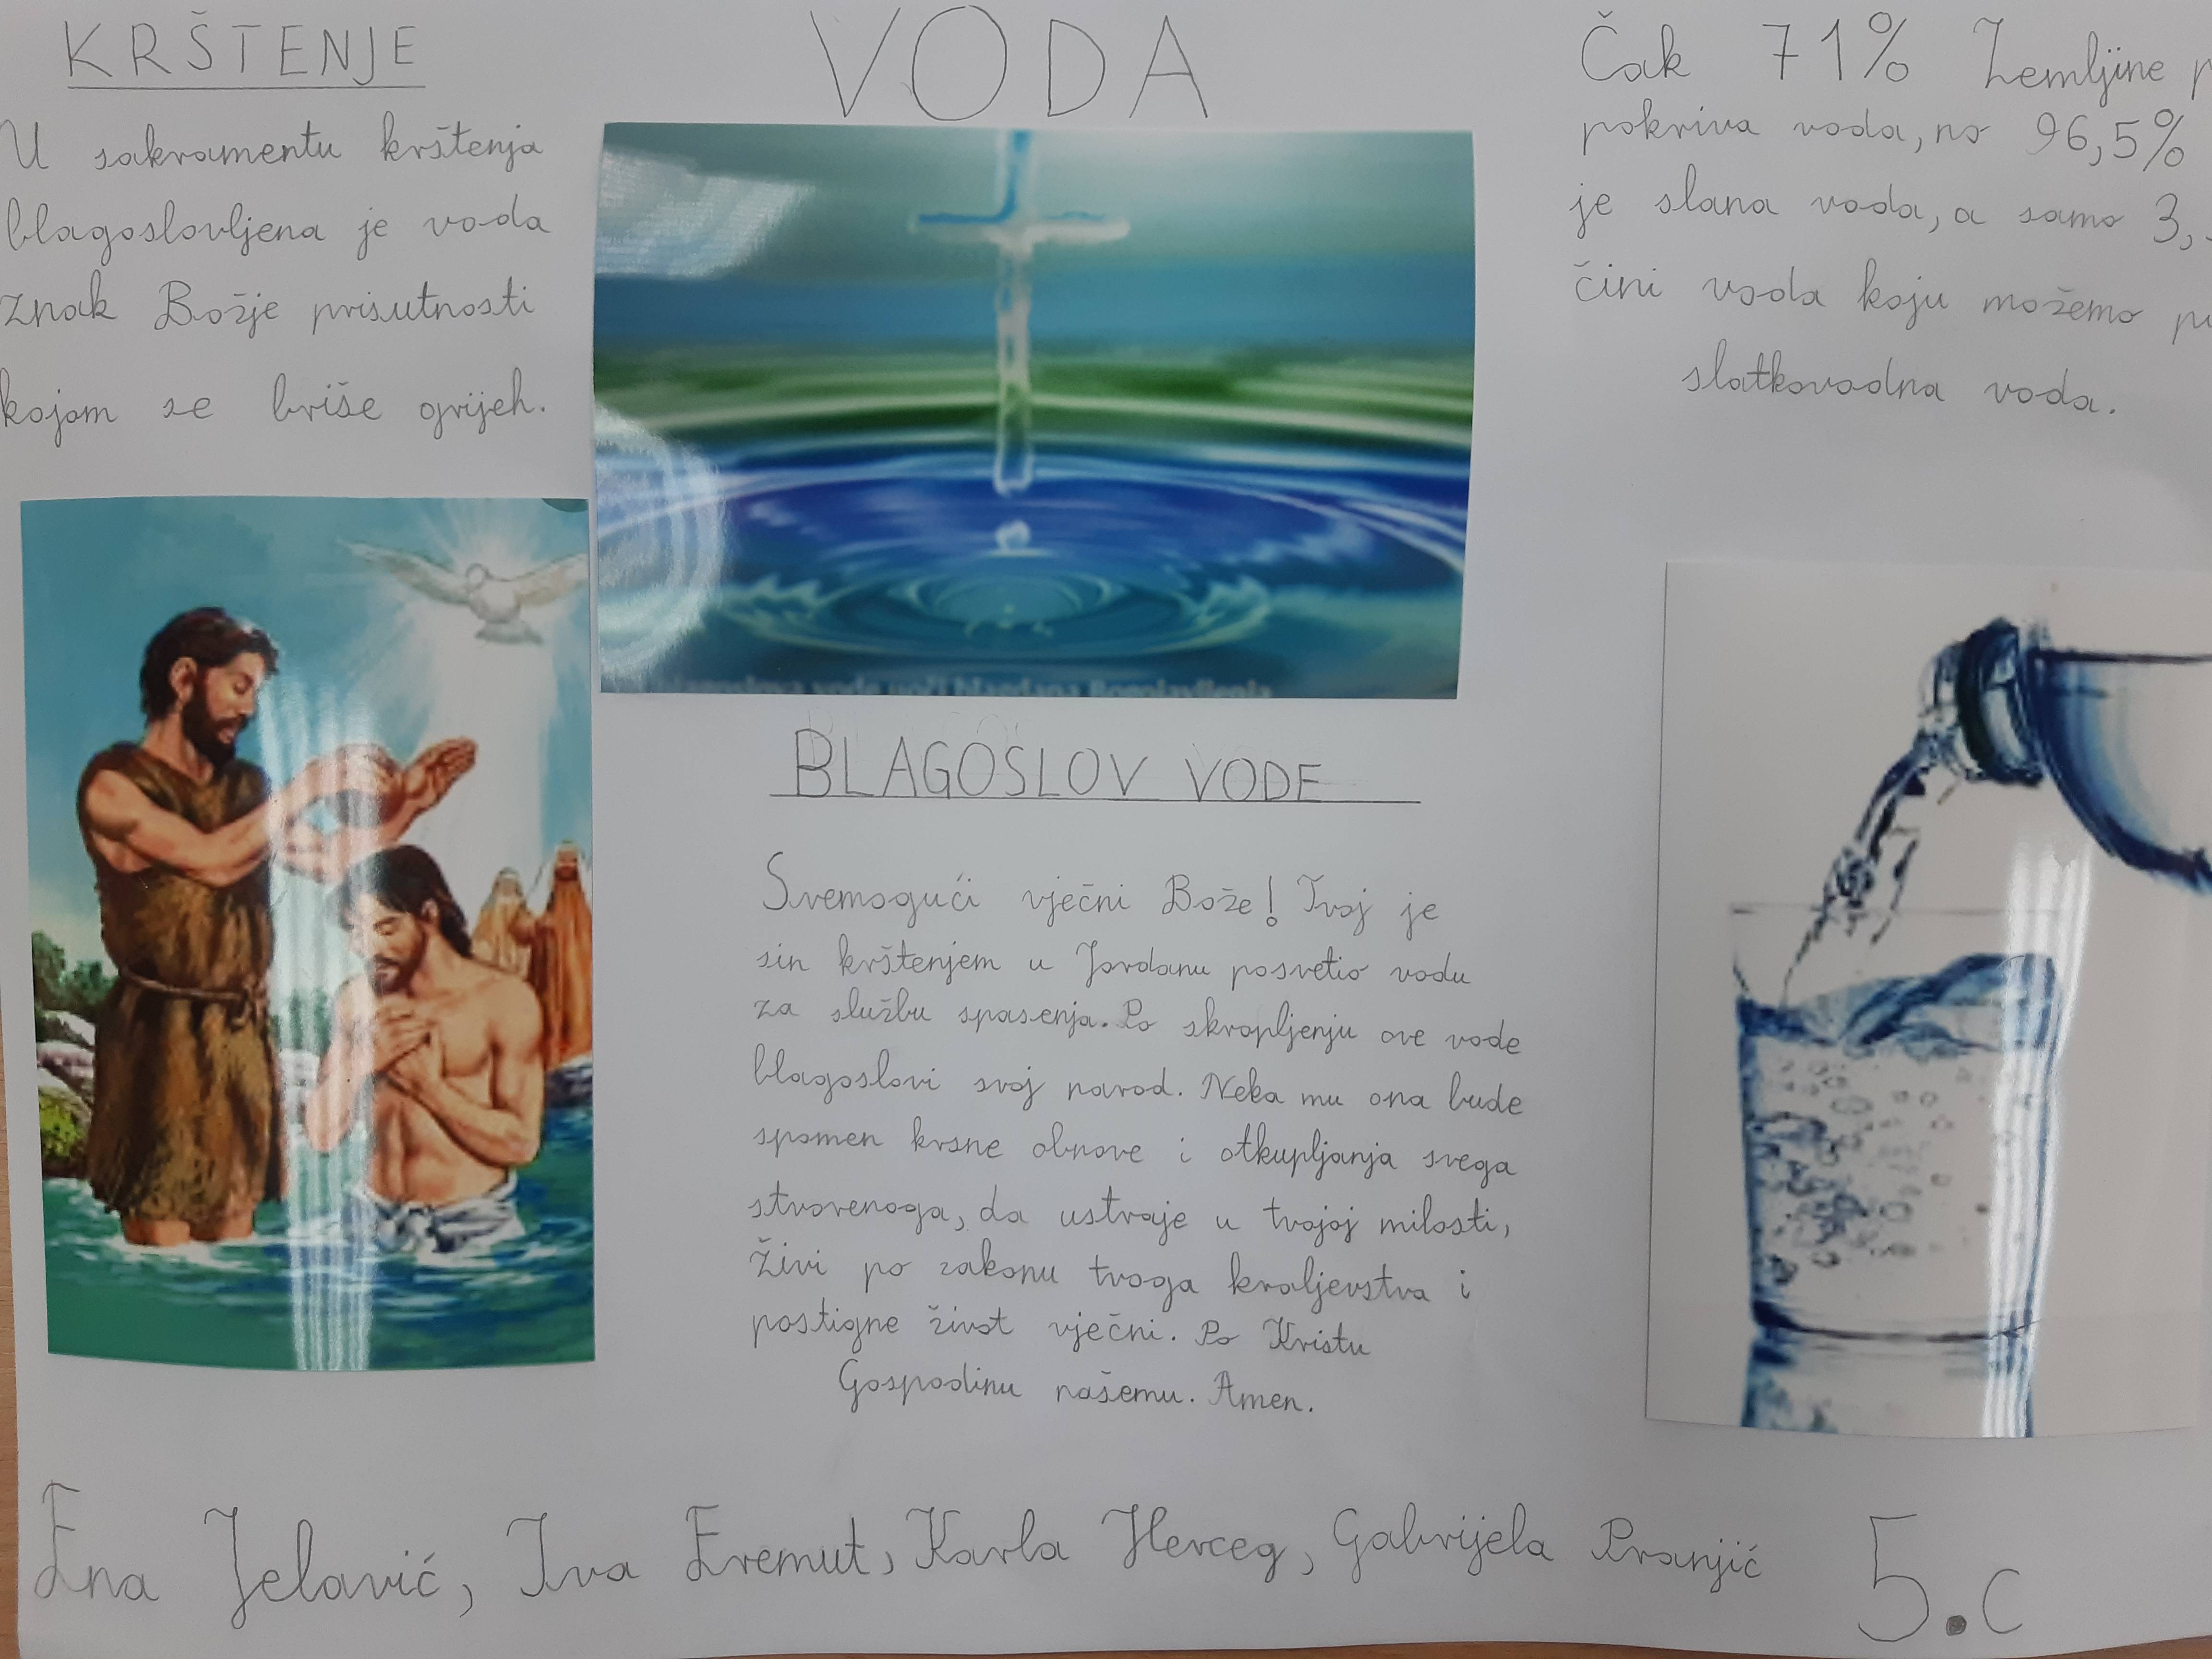 KRŠTENJE
U sakramentu krštenja
blagoslovljena je voda
znak Božje prisutnosti
kojom se briše grijeh.
VODA
Čak 71% Zemljine
pokriva voda, no 96,5%
je slana voda, a samo 3,
čini voda koju možemo
slatkovodna voda.
BLAGOSLOV VODE
Svemogući vječni Bože! Tvoj je
sin krštenjem u Jordanu posvetio vodu
za službu spasenja. Po skropljenju ove vode
blagoslovi svoj narod. Neka mu ona bude
spomen krsne obnove i otkupljanja svega
stvorenoga, da ustraje u tvojoj milosti,
živi po zakonu tvoga kraljevstva i
postigne život vječni. Po Kristu
Gospodinu našemu. Amen.
Ena Jelavić, Iva Eremut, Karla Herceg, Gabrijela Pranjić 5.c